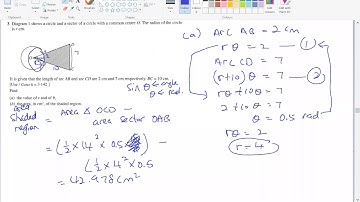 3. Diagram 1 shows a circle and a sector of a circle with a common centre O. The radius of the circle
is r cm.
It is given that the length of arc AB and arc CD are 2 cm and 7 cm respectively. BC = 10 cm.
[Use / Guna π = 3.142 ]
Find
(a) the value of r and of θ,
(b) the area, in cm², of the shaded region.
Sin θ ← angle
θ ← rad.
Shaded region = Area △ OCD -
area sector OAB
= (1/2 × 14² × 0.5 ) -
(1/2 × 4² × 0.5
= 42.978 cm²
(a) Arc AB = 2 cm
rθ = 2 — ①
Arc CD = 7
(r+10) θ = 7 — ②
rθ + 10θ = 7
2 + 10 θ = 7
θ = 0.5 rad
rθ = 2
r = 4